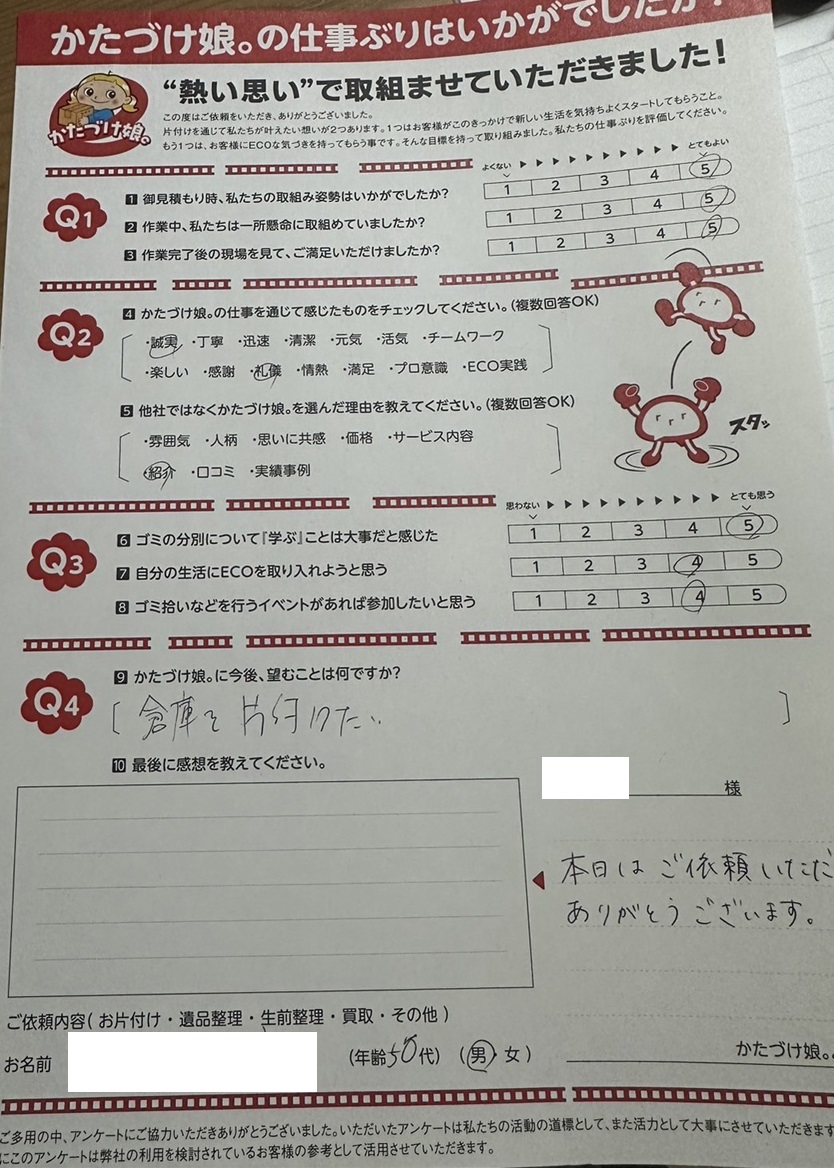 かたづけ娘。の仕事ぶりはいかがでしたか?
かたづけ娘。
“熱い思い”で取組ませていただきました!
この度はご依頼をいただき、ありがとうございました。
片付けを通じて私たちが叶えたい想いが2つあります。1つはお客様がこのきっかけで新しい生活を気持ちよくスタートしてもらうこと。
もう1つは、お客様にECOな気づきを持ってもらう事です。そんな目標を持って取り組みました。私たちの仕事ぶりを評価してください。
よくない とてもよい
Q1
1 御見積もり時、私たちの取組み姿勢はいかがでしたか? 1 2 3 4 5
2 作業中、私たちは一所懸命に取組めていましたか? 1 2 3 4 5
3 作業完了後の現場を見て、ご満足いただけましたか? 1 2 3 4 5
Q2
4 かたづけ娘。の仕事を通じて感じたものをチェックしてください。(複数回答OK)
・誠実 ・丁寧 ・迅速 ・清潔 ・元気 ・活気 ・チームワーク
・楽しい ・感謝 ・礼儀 ・情熱 ・満足 ・プロ意識 ・ECO実践
5 他社ではなくかたづけ娘。を選んだ理由を教えてください。(複数回答OK)
・雰囲気 ・人柄 ・思いに共感 ・価格 ・サービス内容
・紹介 ・口コミ ・実績事例
スタッ
思わない とても思う
Q3
6 ゴミの分別について『学ぶ』ことは大事だと感じた 1 2 3 4 5
7 自分の生活にECOを取り入れようと思う 1 2 3 4 5
8 ゴミ拾いなどを行うイベントがあれば参加したいと思う 1 2 3 4 5
Q4
9 かたづけ娘。に今後、望むことは何ですか?
倉庫を片付けたい
10 最後に感想を教えてください。
様
本日はご依頼いただ
ありがとうございます。
かたづけ娘。
ご依頼内容( お片付け・遺品整理・生前整理・買取・その他 )
お名前 (年齢50代) ( 男・女 )
ご多用の中、アンケートにご協力いただきありがとうございました。いただいたアンケートは私たちの活動の道標として、また活力として大事にさせていただきます
にこのアンケートは弊社の利用を検討されているお客様の参考として活用させていただきます。